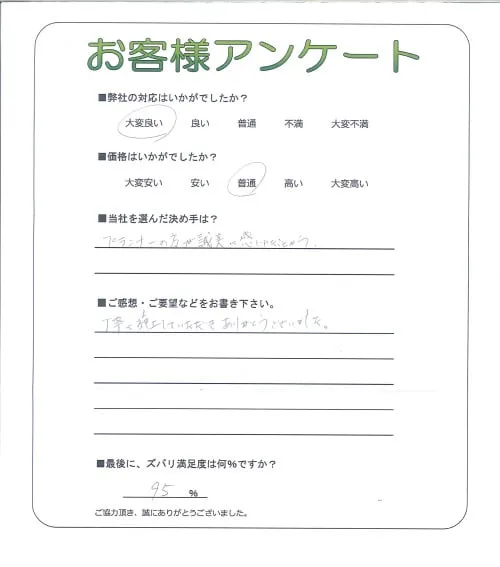 お客様アンケート
■弊社の対応はいかがでしたか?
大変良い 良い 普通 不満 大変不満
■価格はいかがでしたか?
大変安い 安い 普通 高い 大変高い
■当社を選んだ決め手は?
プランナーの方が誠実に感じれたことから。
■ご感想・ご要望などをお書き下さい。
丁寧に施工していただきありがとうございました。
■最後に、ズバリ満足度は何%ですか?
95 %
ご協力頂き、誠にありがとうございました。